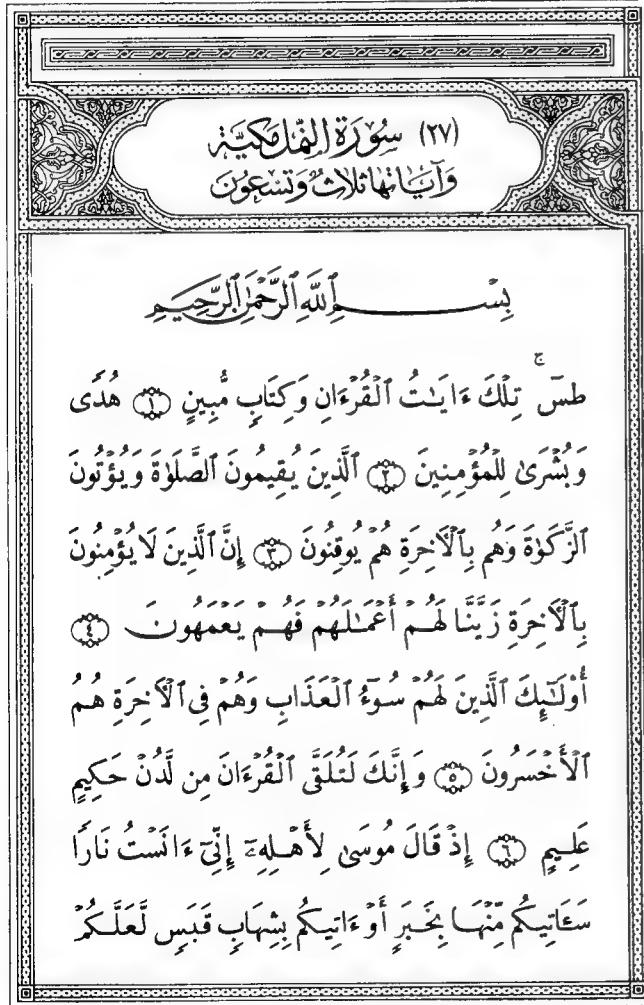 (٢٧) سُورَة النَّمل مَكيَّة
وَآيَاتهَا ثَلَاثٌ وَتسْعُون
بِسْمِ ٱللَّهِ ٱلرَّحْمَٰنِ ٱلرَّحِيمِ
طسٓ ۚ تِلْكَ ءَايَـٰتُ ٱلْقُرْءَانِ وَكِتَابٍ مُّبِينٍ ١ هُدًى
وَبُشْرَىٰ لِلْمُؤْمِنِينَ ٢ ٱلَّذِينَ يُقِيمُونَ ٱلصَّلَوٰةَ وَيُؤْتُونَ
ٱلزَّكَوٰةَ وَهُم بِٱلْأَخِرَةِ هُمْ يُوقِنُونَ ٣ إِنَّ ٱلَّذِينَ لَا يُؤْمِنُونَ
بِٱلْأَخِرَةِ زَيَّنَّا لَهُمْ أَعْمَـٰلَهُمْ فَهُمْ يَعْمَهُونَ ٤
أُوْلَـٰٓئِكَ ٱلَّذِينَ لَهُمْ سُوٓءُ ٱلْعَذَابِ وَهُمْ فِى ٱلْأَخِرَةِ هُمُ
ٱلْأَخْسَرُونَ ٥ وَإِنَّكَ لَتُلَقَّى ٱلْقُرْءَانَ مِن لَّدُنْ حَكِيمٍ
عَلِيمٍ ٦ إِذْ قَالَ مُوسَىٰ لِأَهْلِهِۦٓ إِنِّىٓ ءَانَسْتُ نَارًا
سَـَٔاتِيكُم مِّنْهَا بِخَبَرٍ أَوْ ءَاتِيكُم بِشِهَابٍ قَبَسٍ لَّعَلَّكُمْ